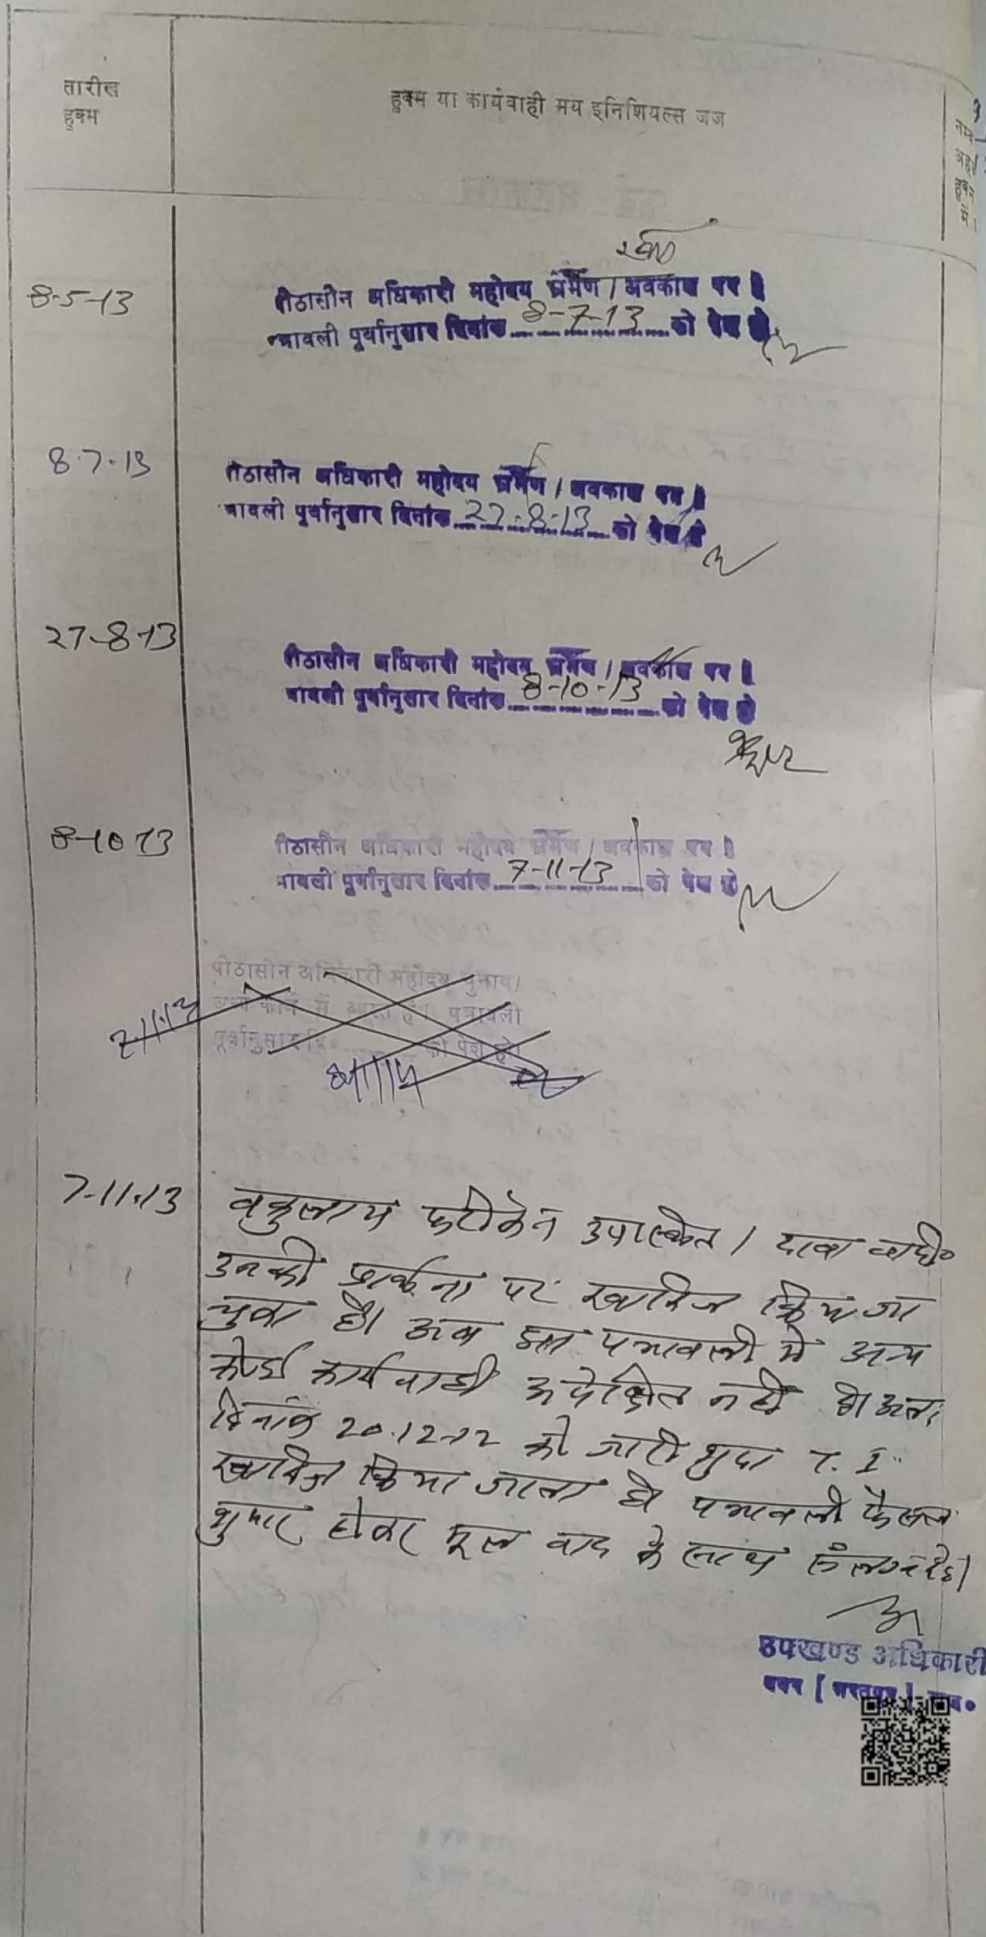 तारीख
हुक्म
हुक्म या कार्यवाही मय इनिशियल्स जज
8-5-13
पीठासीन अधिकारी महोदय भ्रमण / अवकाश पर है।
पत्रावली पूर्वानुसार दिनांक 8-7-13 को पेश हो
8.7.13
पीठासीन अधिकारी महोदय भ्रमण / अवकाश पर है।
पत्रावली पूर्वानुसार दिनांक 27-8-13 को पेश हो
27-8-13
पीठासीन अधिकारी महोदय भ्रमण / अवकाश पर है।
पत्रावली पूर्वानुसार दिनांक 8-10-13 को पेश हो
8-10-13
पीठासीन अधिकारी महोदय भ्रमण / अवकाश पर है।
पत्रावली पूर्वानुसार दिनांक 7-11-13 को पेश हो
पीठासीन अधिकारी महोदय चुनाव/
अन्य कार्य में व्यस्त हैं। पत्रावली
पूर्वानुसार दि को पेश हो।
7-11-13
7-11-13 वकुलाय फरीकेन उपस्थित। दावा वादी०
उनकी प्रार्थना पर खारिज किया जा
चुका है। अब इस पत्रावली में अन्य
कोई कार्यवाही अपेक्षित नहीं है। अतः
दिनांक 20.12.12 को जारी शुदा T. I.
खारिज किया जाता है पत्रावली फैसल
शुमार होकर मूल वाद के साथ संलग्न रहे।
उपखण्ड अधिकारी